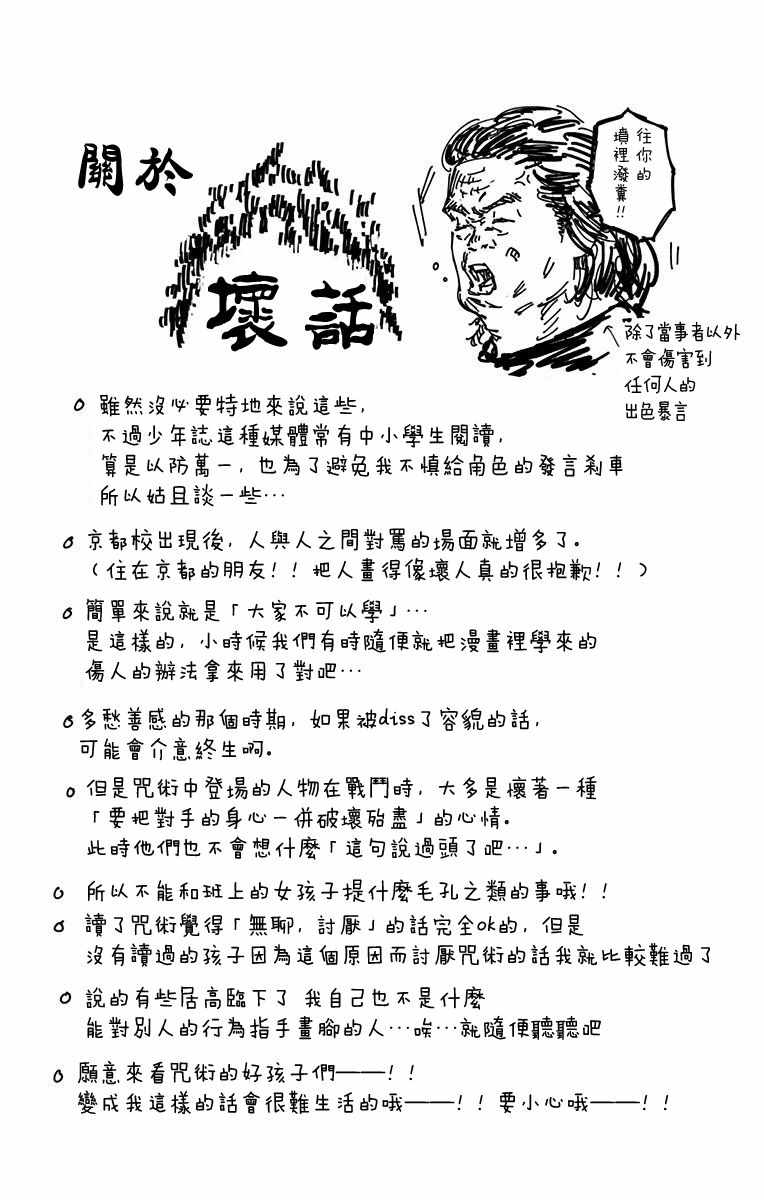 關於
壞話
往你的
墳裡潑糞!!
除了當事者以外
不會傷害到
任何人的
出色暴言
雖然沒必要特地來說這些,
不過少年誌這種媒體常有中小學生閱讀,
算是以防萬一, 也為了避免我不慎給角色的發言剎車
所以姑且談一些…
京都校出現後, 人與人之間對罵的場面就增多了。
(住在京都的朋友!! 把人畫得像壞人真的很抱歉!!)
簡單來說就是「大家不可以學」…
是這樣的, 小時候我們有時隨便就把漫畫裡學來的
傷人的辦法拿來用了對吧…
多愁善感的那個時期, 如果被diss了容貌的話,
可能會介意終生啊。
但是咒術中登場的人物在戰鬥時, 大多是懷著一種
「要把對手的身心一併破壞殆盡」的心情。
此時他們也不會想什麼「這句說過頭了吧…」。
所以不能和班上的女孩子提什麼毛孔之類的事哦!!
讀了咒術覺得「無聊, 討厭」的話完全ok的, 但是
沒有讀過的孩子因為這個原因而討厭咒術的話我就比較難過了
說的有些居高臨下了 我自己也不是什麼
能對別人的行為指手畫腳的人…唉…就隨便聽聽吧
願意來看咒術的好孩子們——!!
變成我這樣的話會很難生活的哦——!! 要小心哦——!!